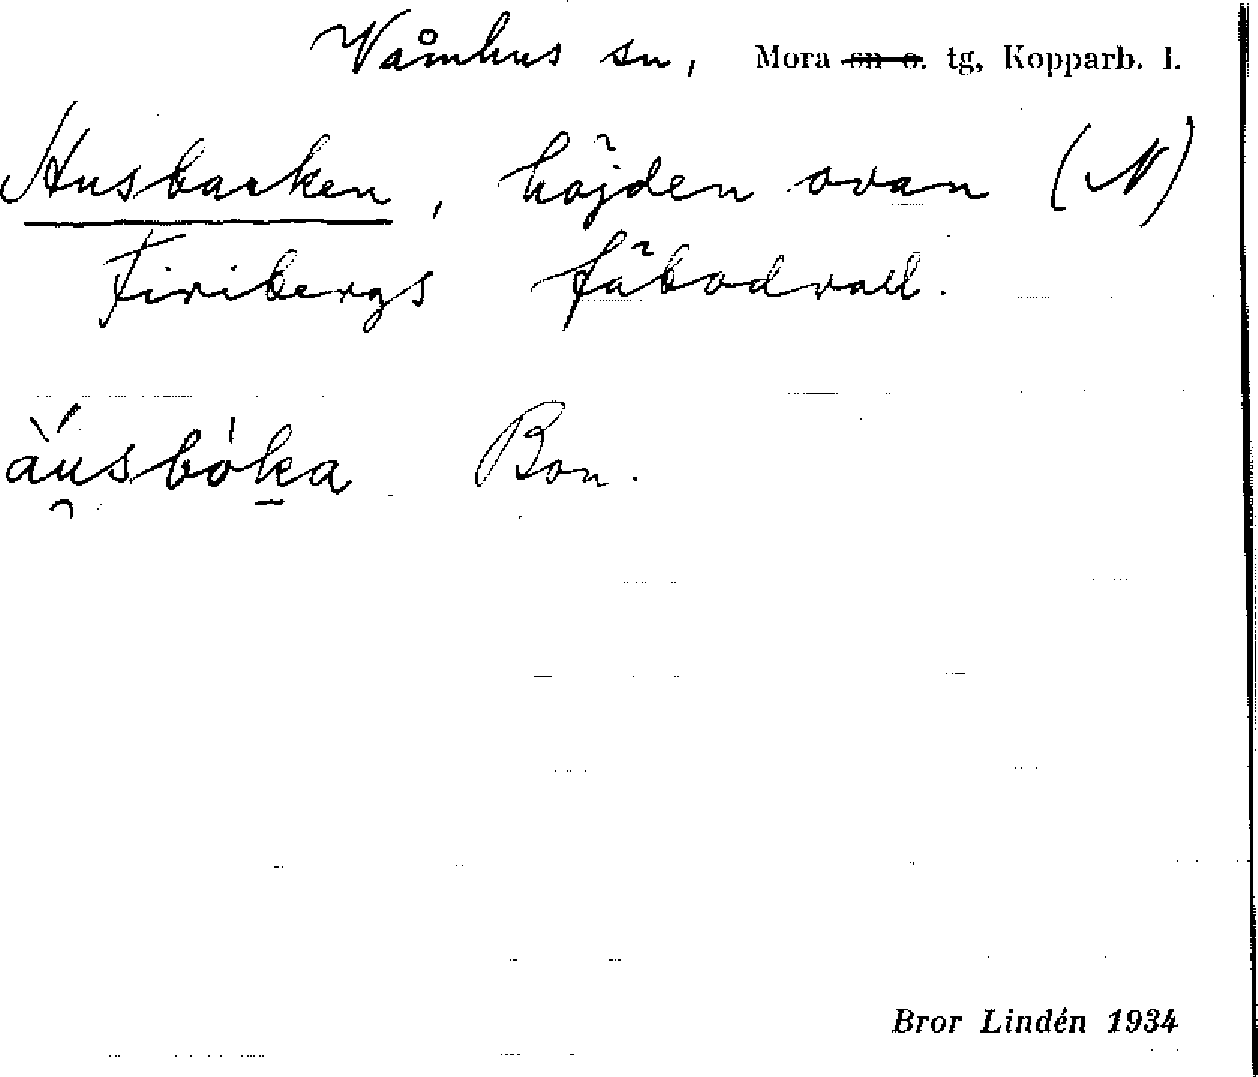 Våmhus sn, Mora sn o. tg, Kopparb. l.
Husbacken, höjden ovan (N)
Firibergs fäbodvall.
äusbóka Bon.
Bror Lindén 1934